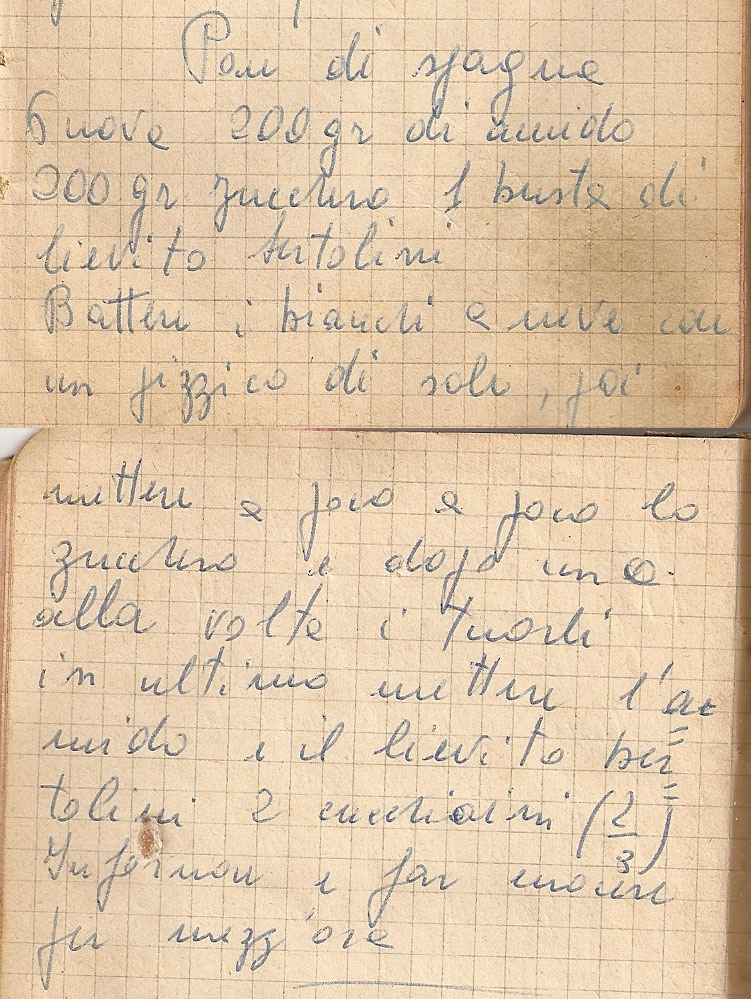 Pan di spagna
6 uova 200 gr di amido
200 gr zucchero 1 busta di
lievito Bertolini
Battere i bianchi a neve con
un pizzico di sale, poi
mettere a poco a poco lo
zucchero e dopo uno
alla volta i tuorli
in ultimo mettere l'a=
mido e il lievito ber=
tolini 2 cucchiaini (2/3)
Infornare e far cuocere
per mezz'ora